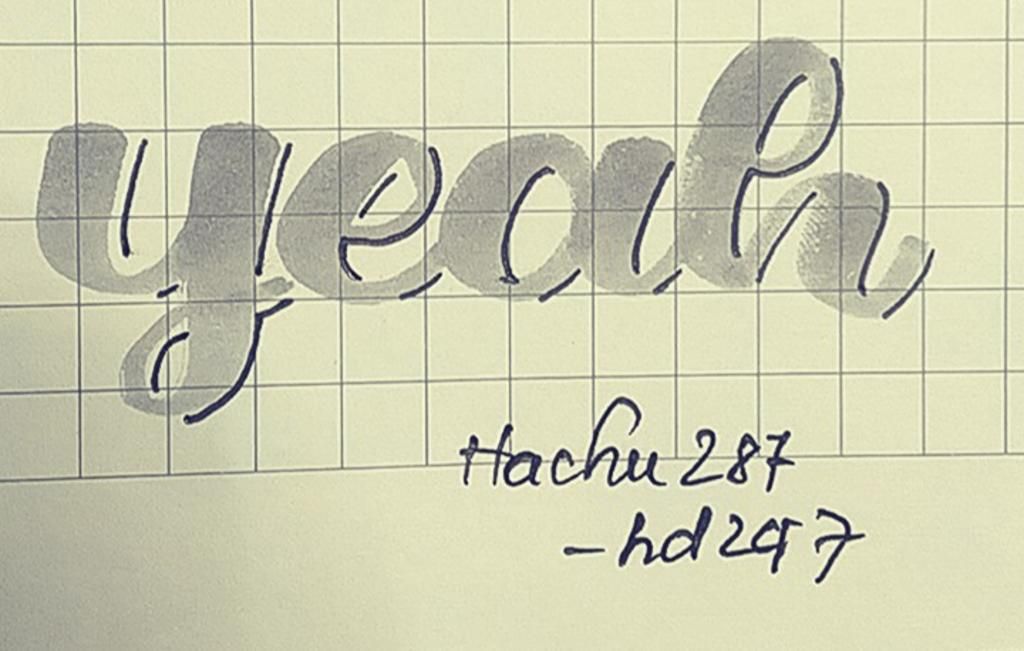 yeah
Hachu 287
- hd297